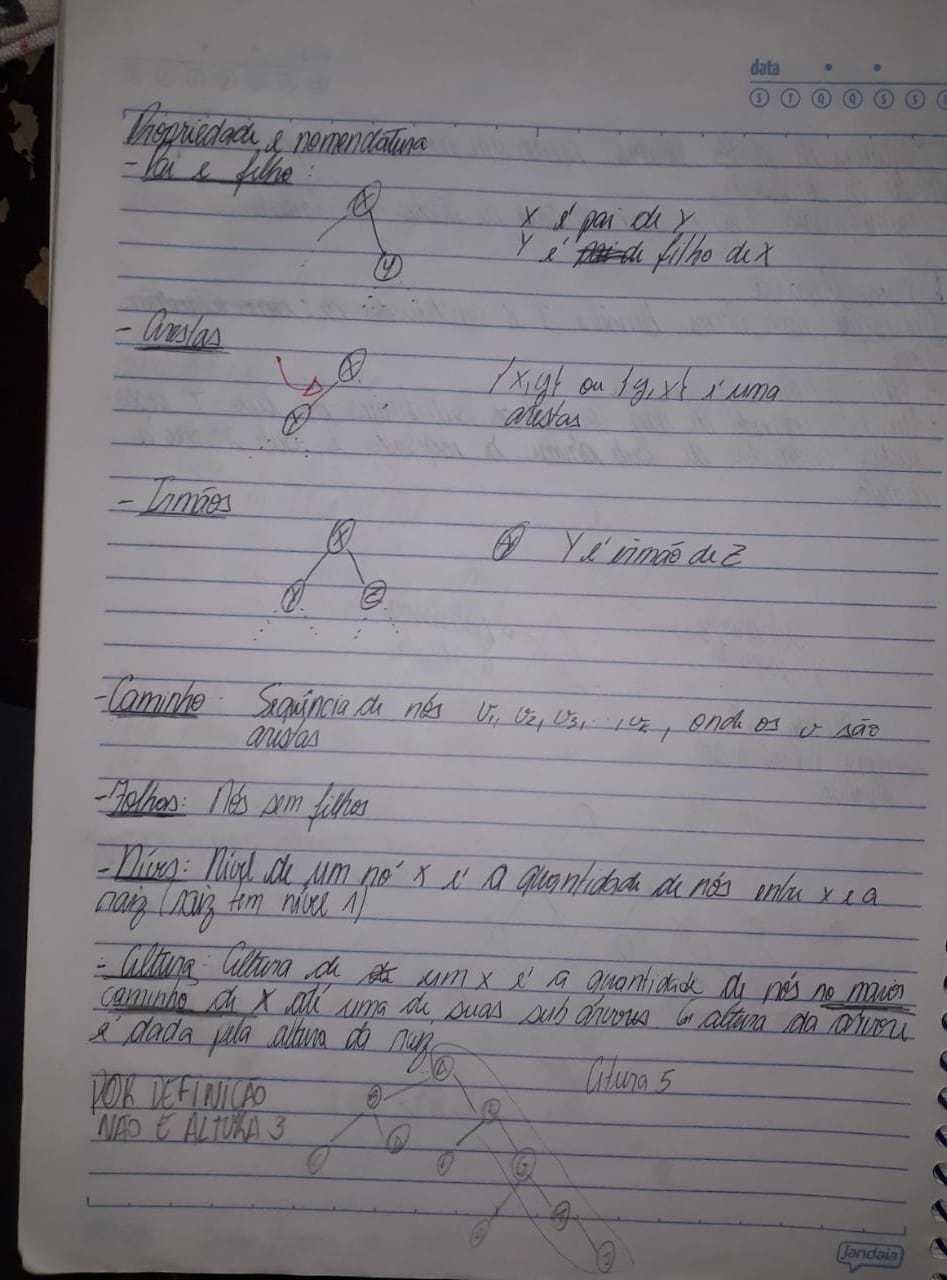 data
S T Q Q S S
Propriedade e nomenclatura
- Pai e filho:
X
Y
X é pai de Y
Y é filho de X
- Arestas
X
Y
{x,y} ou {y,x} é uma
arestas
- Irmãos
X
Y Z
Y é irmão de Z
- Caminho: Sequência de nós v1, v2, v3, ..., vz, onde os v são
arestas
- Folhas: Nós sem filhos
- Níves: Nível de um nó x é a quantidade de nós entre x e a
raiz (raiz tem nível 1)
- Altura: Altura de um x é a quantidade de nós no maior
caminho de x até uma de suas sub árvores. A altura da árvore
é dada pela altura da raiz
A
Altura 5
POR DEFINIÇÃO
NÃO É ALTURA 3
B
C
D
G
jandaia